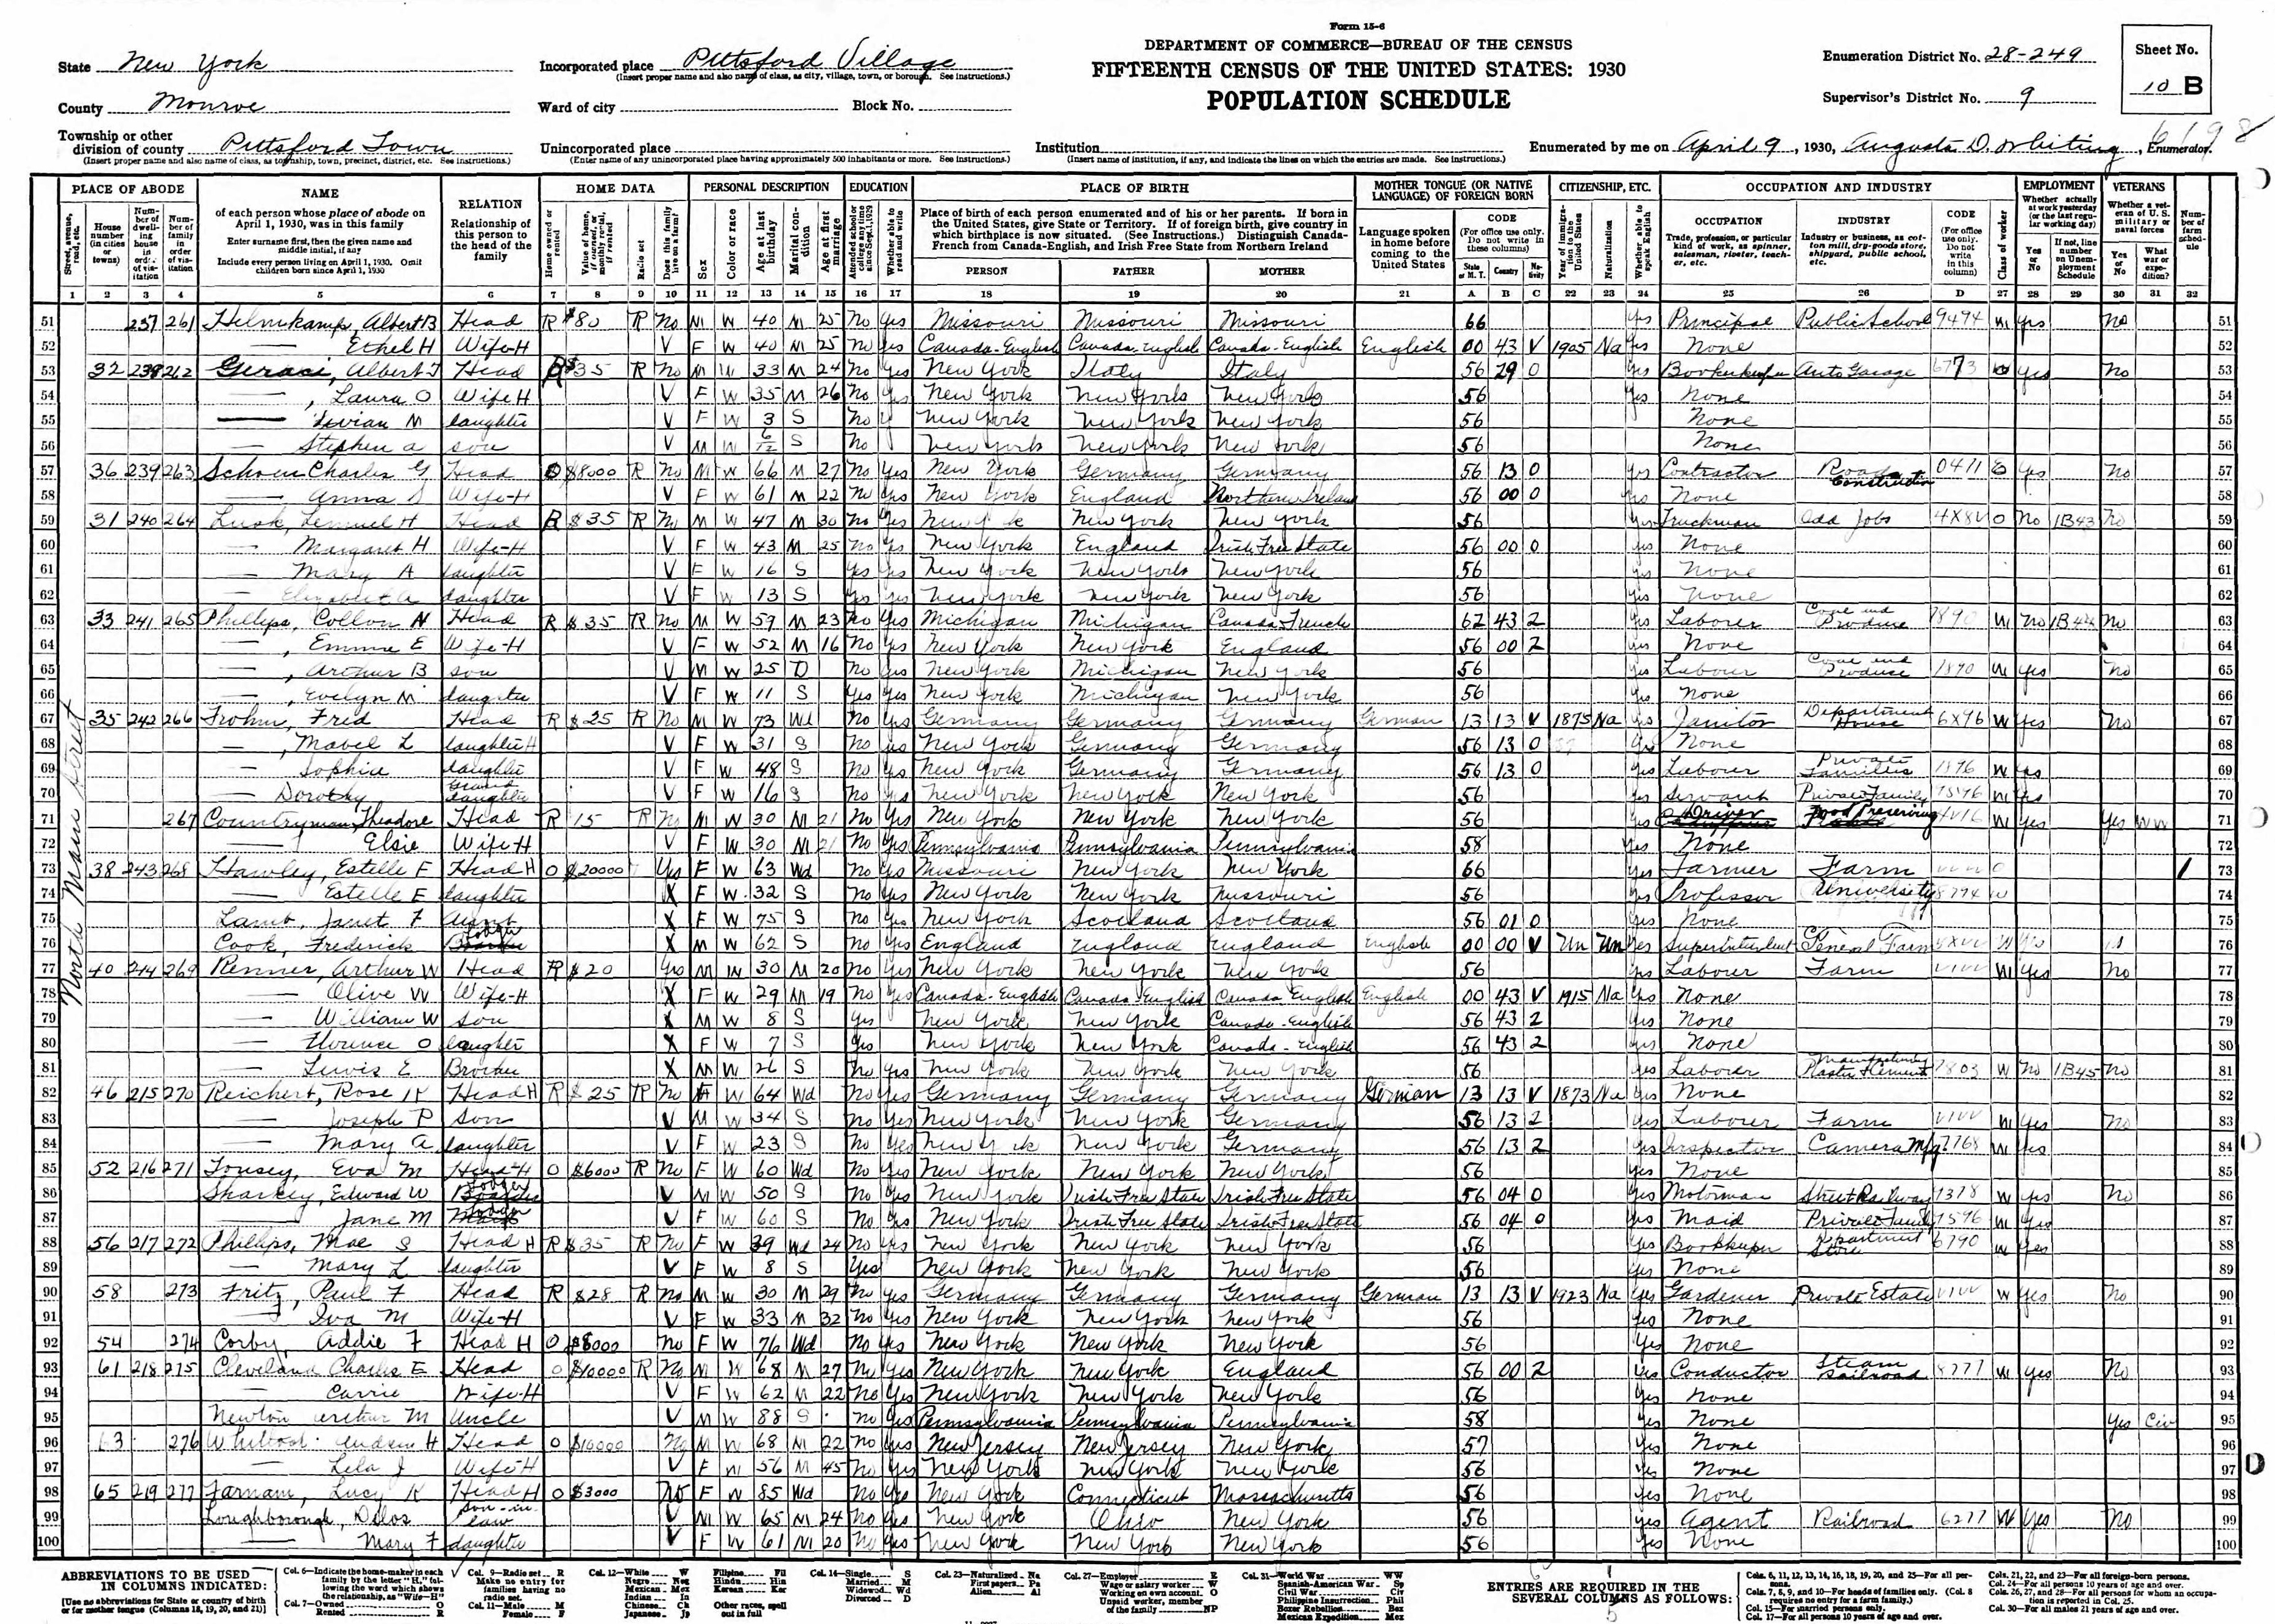 Form 15-6
DEPARTMENT OF COMMERCE—BUREAU OF THE CENSUS
FIFTEENTH CENSUS OF THE UNITED STATES: 1930
POPULATION SCHEDULE
State New York
County Monroe
Township or other division of county Pittsford Town
(Insert proper name and also name of class, as township, town, precinct, district, etc. See instructions.)
Incorporated place Pittsford Village
(Insert proper name and also name of class, as city, village, town, or borough. See instructions.)
Ward of city Block No.
Unincorporated place
(Enter name of any unincorporated place having approximately 500 inhabitants or more. See instructions.)
Institution
(Insert name of institution, if any, and indicate the lines on which the entries are made. See instructions.)
Enumeration District No. 28-249
Supervisor's District No. 9
Sheet No. 10 B
Enumerated by me on April 9, 1930, Augusta D. Whiting, Enumerator.
PLACE OF ABODE
NAME
of each person whose place of abode on April 1, 1930, was in this family
Enter surname first, then the given name and middle initial, if any
Include every person living on April 1, 1930. Omit children born since April 1, 1930
RELATION
Relationship of this person to the head of the family
HOME DATA
PERSONAL DESCRIPTION
EDUCATION
PLACE OF BIRTH
Place of birth of each person enumerated and of his or her parents. If born in the United States, give State or Territory. If of foreign birth, give country in which birthplace is now situated. (See Instructions.) Distinguish Canada-French from Canada-English, and Irish Free State from Northern Ireland
PERSON FATHER MOTHER
MOTHER TONGUE (OR NATIVE LANGUAGE) OF FOREIGN BORN
Language spoken in home before coming to the United States
CODE (For office use only. Do not write in these columns)
CITIZENSHIP, ETC.
OCCUPATION AND INDUSTRY
OCCUPATION
INDUSTRY
CODE (For office use only. Do not write in this column)
EMPLOYMENT
VETERANS
1 2 3 4 5 6 7 8 9 10 11 12 13 14 15 16 17 18 19 20 21 A B C 22 23 24 25 26 D 27 28 29 30 31 32
North Main Street
51 237 261 Helmkamp, Albert B Head R $80 R No M W 40 M 25 No Yes Missouri Missouri Missouri 66 Yes Principal Public School 9494 W Yes No 51
52 — Ethel H Wife-H V F W 40 M 25 No Yes Canada-English Canada-English Canada-English English 00 43 V 1905 Na Yes None 52
53 32 238 262 Geraci, Albert J Head R $35 R No M W 33 M 24 No Yes New York Italy Italy 56 29 0 Yes Bookkeeper Auto Garage 6773 W Yes No 53
54 —, Laura O Wife H V F W 35 M 26 No Yes New York New York New York 56 Yes None 54
55 — Vivian M daughter V F W 3 S No New York New York New York 56 None 55
56 — Stephen A son V M W 6/12 S No New York New York New York 56 None 56
57 36 239 263 Schoen Charles G Head O $8000 R No M W 66 M 27 No Yes New York Germany Germany 56 13 0 Yes Contractor Road Construction 0411 E Yes No 57
58 — Anna S Wife-H V F W 61 M 22 No Yes New York England Northern Ireland 56 00 0 Yes None 58
59 31 240 264 Lusk, Lemuel H Head R $35 R No M W 47 M 30 No Yes New York New York New York 56 Yes Truckman Odd Jobs O No 1B43 No 59
60 — Margaret H Wife-H V F W 43 M 25 No Yes New York England Irish Free State 56 00 0 Yes None 60
61 — Mary A daughter V F W 16 S Yes Yes New York New York New York 56 Yes None 61
62 — Elizabeth A daughter V F W 13 S Yes Yes New York New York New York 56 Yes None 62
63 33 241 265 Phillips, Collon N Head R $35 R No M W 59 M 23 No Yes Michigan Michigan Canada-French 62 43 2 Yes Laborer Produce 7890 W No 1B44 No 63
64 —, Emma E Wife-H V F W 52 M 16 No Yes New York New York England 56 00 2 Yes None 64
65 —, Arthur B son V M W 25 D No Yes New York Michigan New York 56 Yes Labourer Produce W Yes No 65
66 —, Evelyn M daughter V F W 11 S Yes Yes New York Michigan New York 56 Yes None 66
67 35 242 266 Frohm, Fred Head R $25 R No M W 73 Wd No Yes Germany Germany Germany German 13 13 V 1875 Na Yes Janitor Department House 6X96 W Yes No 67
68 —, Mabel L daughter H V F W 31 S No Yes New York Germany Germany 56 13 0 Yes None 68
69 — Sophia daughter V F W 48 S No Yes New York Germany Germany 56 13 0 Yes Labourer Private Families W Yes 69
70 — Dorothy Grand daughter V F W 16 S No Yes New York New York New York 56 Yes Servant Private Family W Yes 70
71 267 Countryman, Theodore Head R 15 R No M W 30 M 21 No Yes New York New York New York 56 Yes Driver Food Preserving W Yes Yes WW 71
72 — Elsie Wife H V F W 30 M 21 No Yes Pennsylvania Pennsylvania Pennsylvania 58 Yes None 72
73 38 243 268 Hawley, Estelle F Head H O $20000 Yes F W 63 Wd No Yes Missouri New York New York 66 Yes Farmer Farm O 1 73
74 — Estelle E daughter X F W 32 S No Yes New York New York Missouri 56 Yes Professor University W 74
75 Lamb, Janet F Aunt X F W 75 S No Yes New York Scotland Scotland 56 01 0 Yes None 75
76 Cook, Frederick Lodger X M W 62 S No Yes England England England English 00 00 V Un Un Yes Superintendent General Farm W Yes 76
77 40 214 269 Renner, Arthur W Head R $20 Yes M W 30 M 20 No Yes New York New York New York 56 Yes Labourer Farm VIVV W Yes No 77
78 — Olive W Wife-H X F W 29 M 19 No Yes Canada-English Canada-English Canada English English 00 43 V 1915 Na Yes None 78
79 — William W son X M W 8 S Yes New York New York Canada-English 56 43 2 Yes None 79
80 — Florence O daughter X F W 7 S Yes New York New York Canada-English 56 43 2 Yes None 80
81 — Lewis E Brother X M W 26 S No Yes New York New York New York 56 Yes Laborer Manufacturing 7803 W No 1B45 No 81
82 46 215 270 Reichert, Rose K Head H R $25 R No F W 64 Wd No Yes Germany Germany Germany German 13 13 V 1873 Na Yes None 82
83 — Joseph P son V M W 34 S No Yes New York New York Germany 56 13 2 Yes Labourer Farm VIVV W Yes No 83
84 — Mary A daughter V F W 23 S No Yes New York New York Germany 56 13 2 Yes Inspector Camera Mfg 7768 W Yes 84
85 52 216 271 Tousey, Eva M Head-H O $6000 R No F W 60 Wd No Yes New York New York New York 56 Yes None 85
86 Sharkey, Edward W Lodger V M W 50 S No Yes New York Irish Free State Irish Free State 56 04 0 Yes Motorman Street Railway 7378 W Yes No 86
87 — Jane M Lodger V F W 60 S No Yes New York Irish Free State Irish Free State 56 04 0 Yes Maid Private Family W Yes 87
88 56 217 272 Phillips, Mae S Head H R $35 R No F W 39 Wd 24 No Yes New York New York New York 56 Yes Bookkeeper Department Store 6790 W Yes 88
89 — Mary L daughter V F W 8 S Yes New York New York New York 56 Yes None 89
90 58 273 Fritz, Paul F Head R $28 R No M W 30 M 29 No Yes Germany Germany Germany German 13 13 V 1923 Na Yes Gardener Private Estate VIVV W Yes No 90
91 — Iva M Wife-H V F W 33 M 32 No Yes New York New York New York 56 Yes None 91
92 54 274 Corby, Addie F Head H O $8000 No F W 76 Wd No Yes New York New York New York 56 Yes None 92
93 61 218 275 Cleveland Charles E Head O $10000 R No M W 68 M 27 No Yes New York New York England 56 00 2 Yes Conductor Steam Railroad 8277 W Yes No 93
94 — Carrie Wife-H V F W 62 M 22 No Yes New York New York New York 56 Yes None 94
95 Newton Arthur M Uncle V M W 88 S No Yes Pennsylvania Pennsylvania Pennsylvania 58 Yes None Yes Civ 95
96 63 276 Andrew H Head O $10000 No M W 68 M 22 No Yes New Jersey New Jersey New York 57 Yes None 96
97 — Lela J Wife H V F W 56 M 45 No Yes New York New York New York 56 Yes None 97
98 65 219 277 Farnam, Lucy K Head H O $3000 No F W 85 Wd No Yes New York Connecticut Massachusetts 56 Yes None 98
99 Loughborough, Delos son-in-law V M W 65 M 24 No Yes New York Ohio New York 56 Yes Agent Railroad 6277 W Yes No 99
100 — Mary F daughter V F W 61 M 20 No Yes New York New York New York 56 Yes None 100
ABBREVIATIONS TO BE USED IN COLUMNS INDICATED:
[Use no abbreviations for State or country of birth or for mother tongue (Columns 18, 19, 20, and 21)]
Col. 6—Indicate the home-maker in each family by the letter "H," following the word which shows the relationship, as "Wife—H"
Col. 7—Owned O
Rented R
Col. 9—Radio set R
Make no entry for families having no radio set.
Col. 11—Male M
Female F
Col. 12—White W
Negro Neg
Mexican Mex
Indian In
Chinese Ch
Japanese Jp
Filipino Fil
Hindu Hin
Korean Kor
Other races, spell out in full
Col. 14—Single S
Married M
Widowed Wd
Divorced D
Col. 23—Naturalized Na
First papers Pa
Alien Al
Col. 27—Employer E
Wage or salary worker W
Working on own account O
Unpaid worker, member of the family NP
Col. 31—World War WW
Spanish-American War Sp
Civil War Civ
Philippine Insurrection Phil
Boxer Rebellion Box
Mexican Expedition Mex
ENTRIES ARE REQUIRED IN THE SEVERAL COLUMNS AS FOLLOWS:
Cols. 6, 11, 12, 13, 14, 16, 18, 19, 20, and 25—For all persons.
Cols. 7, 8, 9, and 10—For heads of families only. (Col. 8 requires no entry for a farm family.)
Col. 15—For married persons only.
Col. 17—For all persons 10 years of age and over.
Cols. 21, 22, and 23—For all foreign-born persons.
Col. 24—For all persons 10 years of age and over.
Cols. 26, 27, and 28—For all persons for whom an occupation is reported in Col. 25.
Col. 30—For all males 21 years of age and over.